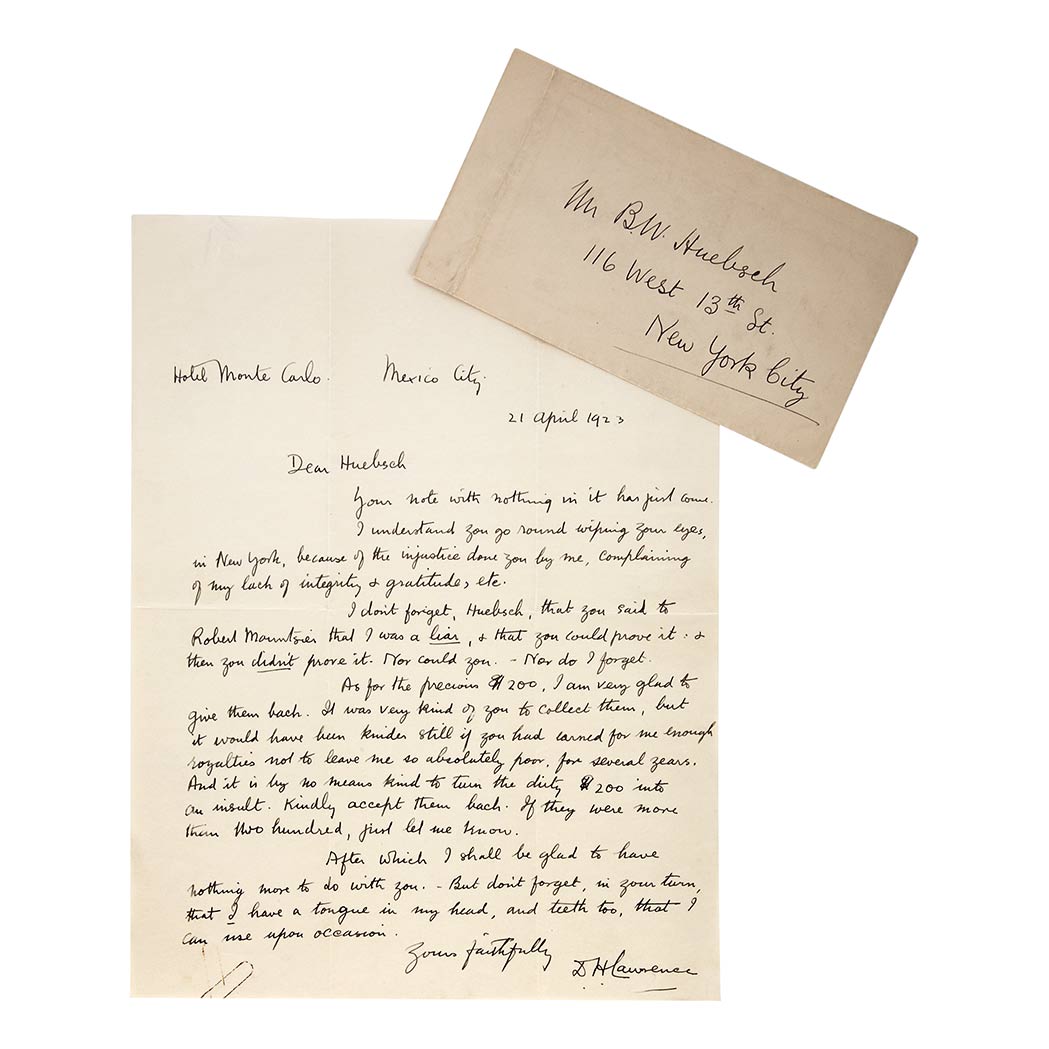 Mr B.W. Huebsch
116 West 13th St.
New York City
Hotel Monte Carlo. Mexico City.
21 April 1923
Dear Huebsch
Your note with nothing in it has just come.
I understand you go round wiping your eyes,
in New York, because of the injustice done you by me, complaining
of my lack of integrity & gratitude, etc.
I don't forget, Huebsch, that you said to
Robert Mountsier that I was a liar, & that you could prove it: &
then you didn't prove it. Nor could you. – Nor do I forget.
As for the precious $200, I am very glad to
give them back. It was very kind of you to collect them, but
it would have been kinder still if you had earned for me enough
royalties not to leave me so absolutely poor, for several years.
And it is by no means kind to turn the dirty $200 into
an insult. Kindly accept them back. If they were more
than two hundred, just let me know.
After which I shall be glad to have
nothing more to do with you. – But don't forget, in your turn,
that I have a tongue in my head, and teeth too, that I
can use upon occasion.
Yours faithfully
D.H. Lawrence